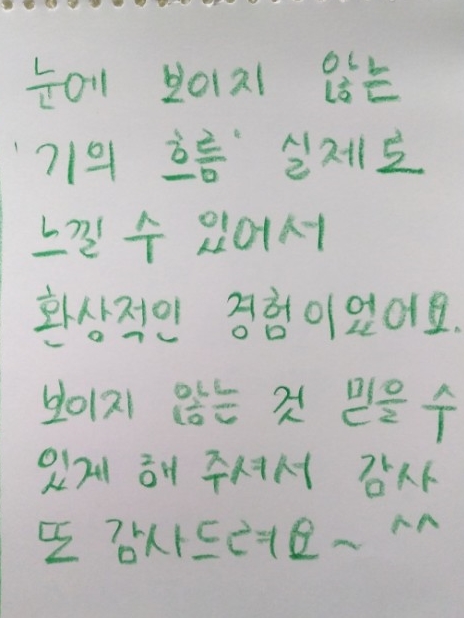 눈에 보이지 않는
'기의 흐름' 실제로
느낄 수 있어서
환상적인 경험이었어요.
보이지 않는 것 믿을 수
있게 해 주셔서 감사
또 감사드려요~ ^^